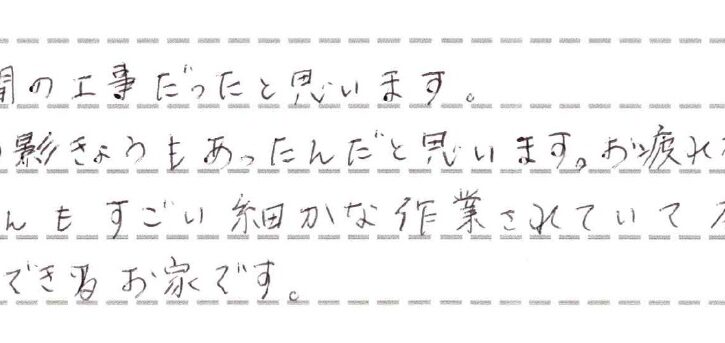 間の工事だったと思います。
影きょうもあったんだと思います。お疲れ
んもすごい細かな作業されていて
できるお家です。